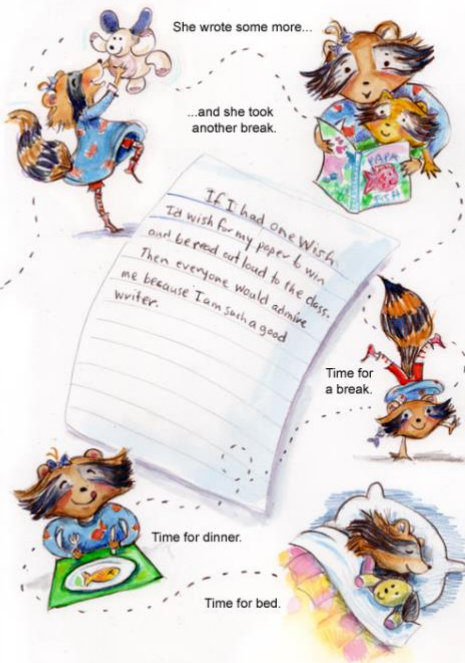 She wrote some more...
...and she took
another break.
PAPA
FISH
If I had one Wish
I'd wish for my paper to win
and be read out loud to the class.
Then everyone would admire
me because I am such a good
writer.
Time for
a break.
Time for dinner.
Time for bed.